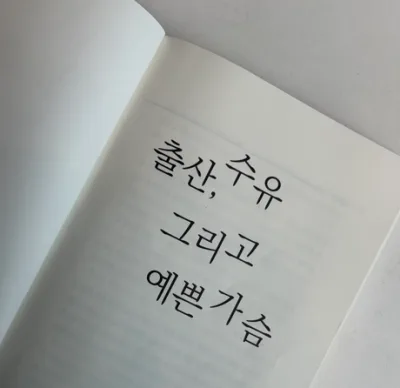 출산, 수유
그리고
예쁜 가슴